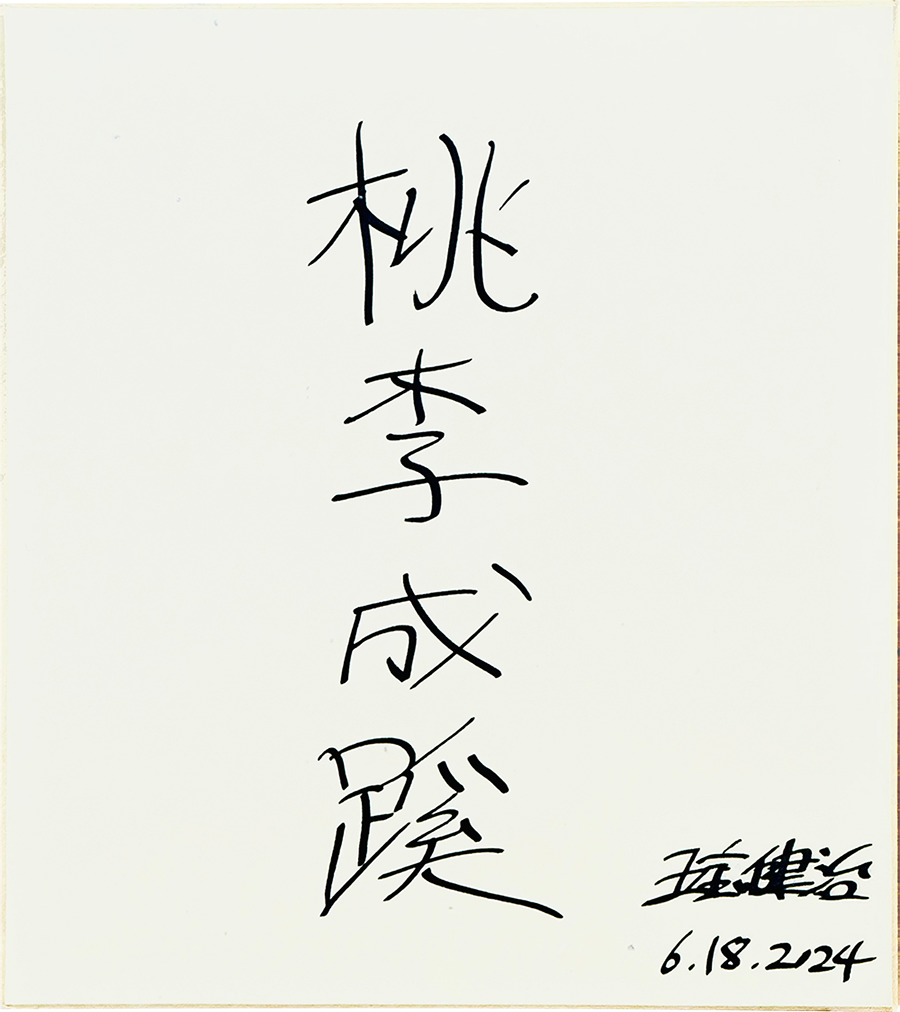 桃李成蹊
健治
6.18.2024